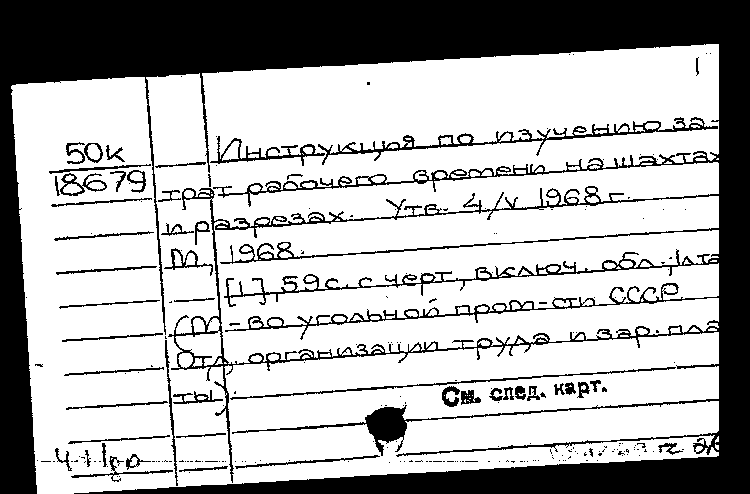 1
50к
18679
Инструкция по изучению за-
трат рабочего времени на шахтах
и разрезах. Утв. 4/V 1968 г.
М., 1968.
[1], 59 с. с черт., включ. обл.; 1 л. та
(М-во угольной пром-сти СССР
Отд. организации труда и зар. пла
ты).
См. след. карт.